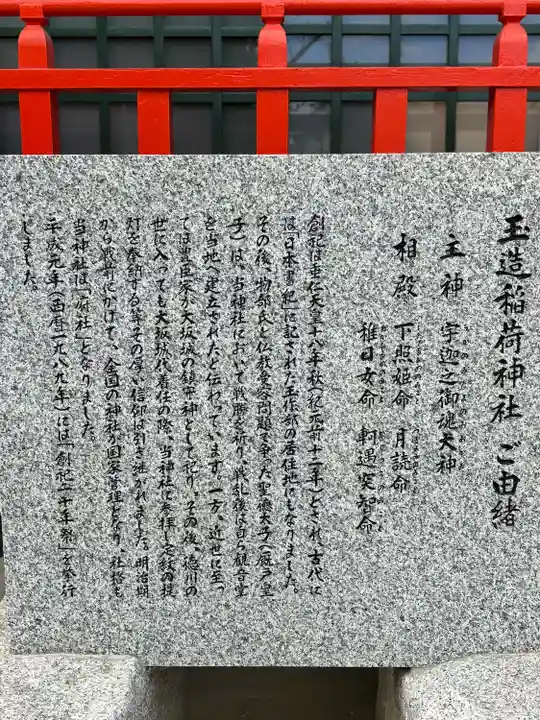 玉造稲荷神社 ご由緒
主神 宇迦之御魂大神
相殿 下照姫命 月読命
稚日女命 軻遇突智命
創祀は垂仁天皇十八年秋(紀元前十二年)とされ、古代に
は『日本書紀』に記された玉作部の居住地にもなりました。
その後、物部氏と仏教受容問題で争った聖徳太子(厩戸皇
子)は、当神社において戦勝を祈り、戦乱後は自ら観音堂
を当地へ建立されたと伝わっています。一方、近世に至っ
ては豊臣家が大坂城の鎮守神として祀り、その後、徳川の
世に入っても大坂城代着任の際、当神社に参拝し定紋の提
灯を奉納する等その厚い信仰は引き継がれました。明治期
から戦前にかけて、全国の神社が国家管理となり、社格も
当神社は「府社」となりました。
平成元年(西暦一九八九年)には「創祀二千年祭」を挙行
しました。